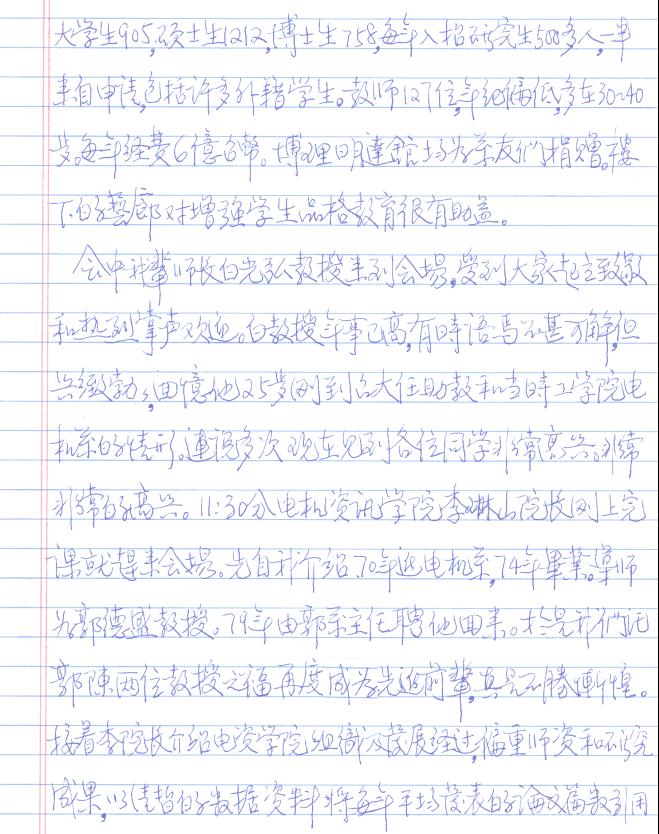 大学生905,硕士生1212,博士生758,每年入招研究生500多人,一半
来自申请,包括许多外籍学生。教师127位,年纪偏低,多在30~40
岁。每年经费6億台幣。博理、明達館均为系友们捐赠。樓
下的藝廊对增强学生品格教育很有助益。
会中我輩师长白光弘教授来到会場,受到大家起立致敬
和热烈掌声欢迎。白教授年事已高,有時语焉不甚可解,但
兴緻勃勃,回憶他25岁刚到台大任助教和当時工学院电
机系的情形。連说多次 现在见到各位同学非常高兴。非常
非常的高兴。11:30分电机资訊学院李琳山院长刚上完
课就趕来会場。先自我介绍.70年进电机系,74年畢業。導师
为郭德盛教授。79年由郭系主任聘他回来。於是我们託
郭陳两位教授之福再度成为先进前輩,真是不勝慚惶。
接着李院长介绍电资学院组織及發展经过,偏重师资和研究
成果,以清晰的数据资料将每年平均發表的论文篇数引用